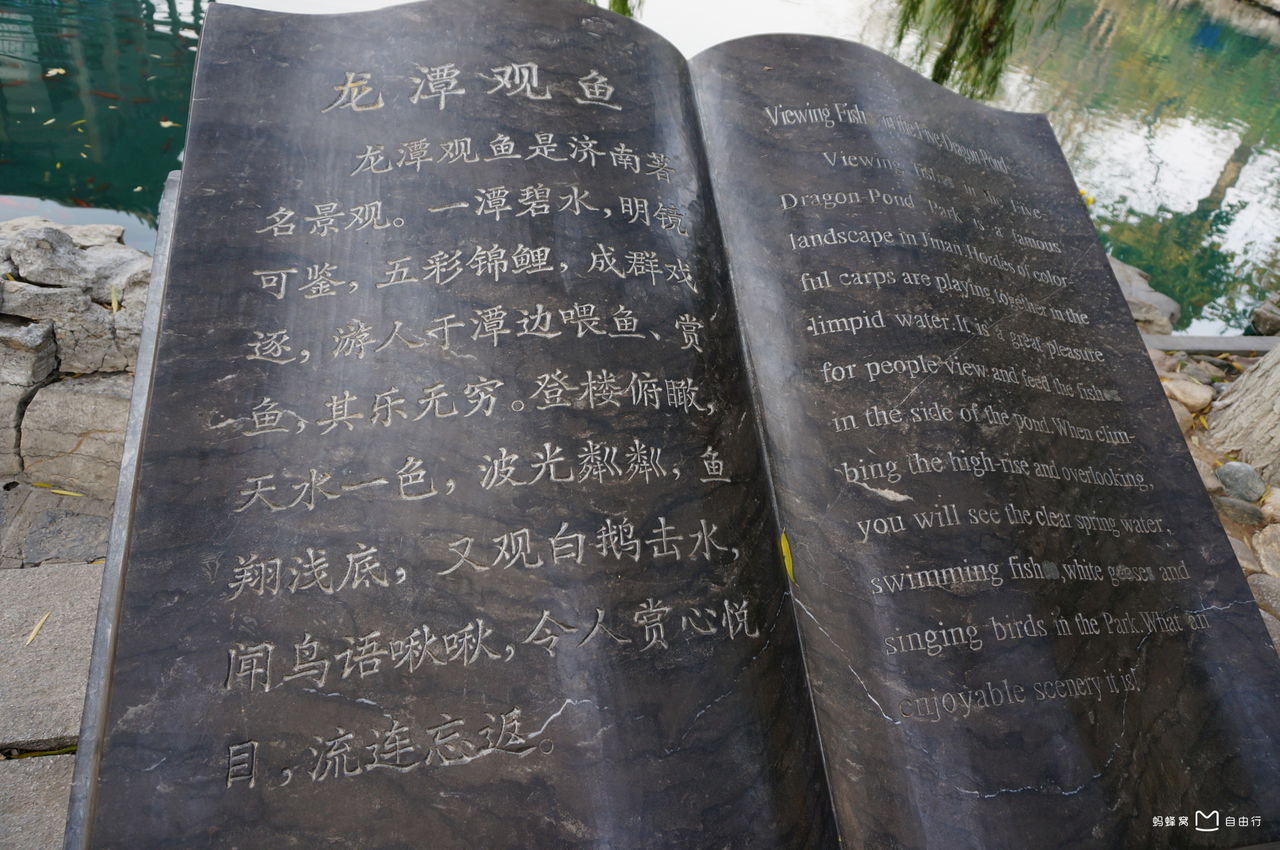 龙潭观鱼
龙潭观鱼是济南著
名景观。一潭碧水,明镜
可鉴,五彩锦鲤,成群戏
逐,游人于潭边喂鱼、赏
鱼,其乐无穷。登楼俯瞰,
天水一色,波光粼粼,鱼
翔浅底,又观白鹅击水,
闻鸟语啾啾,令人赏心悦
目,流连忘返。
Viewing Fish in the Five-Dragon Pond
Viewing fishes in the Five-
Dragon-Pond Park is a famous
landscape in Jinan Hordes of color-
ful carps are playing together in the
limpid water.It is a great pleasure
for people view and feed the fishes
in the side of the pond.When clim-
bing the high-rise and overlooking,
you will see the clear spring water,
swimming fish ,white and
singing birds in the Park.What an
enjoyable scenery it is!
蚂蜂窝 自由行